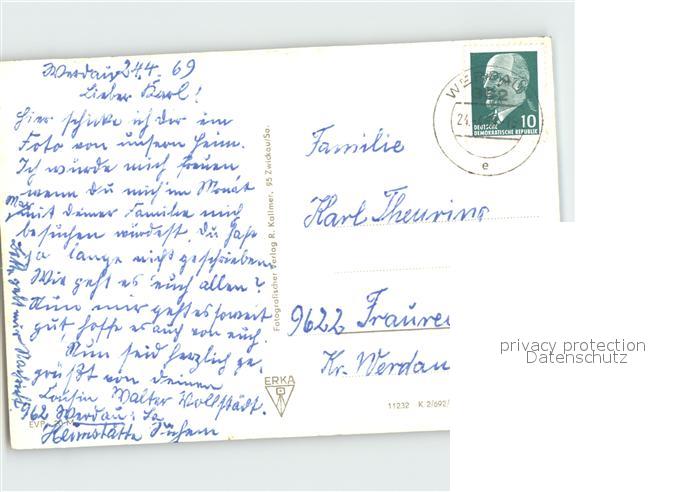 Werdau, 24.4.69
Lieber Karl!
Hier schicke ich dir ein
Foto von unsern Heim.
Ich würde mich freuen,
wenn Du mich im Monat
Mai mit deiner Familie mich
besuchen würdest. Du hast
ja lange nicht geschrieben.
Wie geht es euch allen?
Nun mir geht es soweit
gut, hoffe es auch von euch.
Nun seid herzlich ge-
grüßt von deinem
Cousin Walter Wollstädt.
962 Werdau: Sa
Heimstätte
Bitte gebt mir Nachricht
EVP
Fotografischer Verlag R. Kallmer, 95 Zwickau/Sa.
ERKA
WERDAU
962
24.
e
10
DEUTSCHE
DEMOKRATISCHE REPUBLIK
Familie
Karl Theuring
9622 Fraure
Kr. Werdau
11232 K 2/692/
privacy protection
Datenschutz